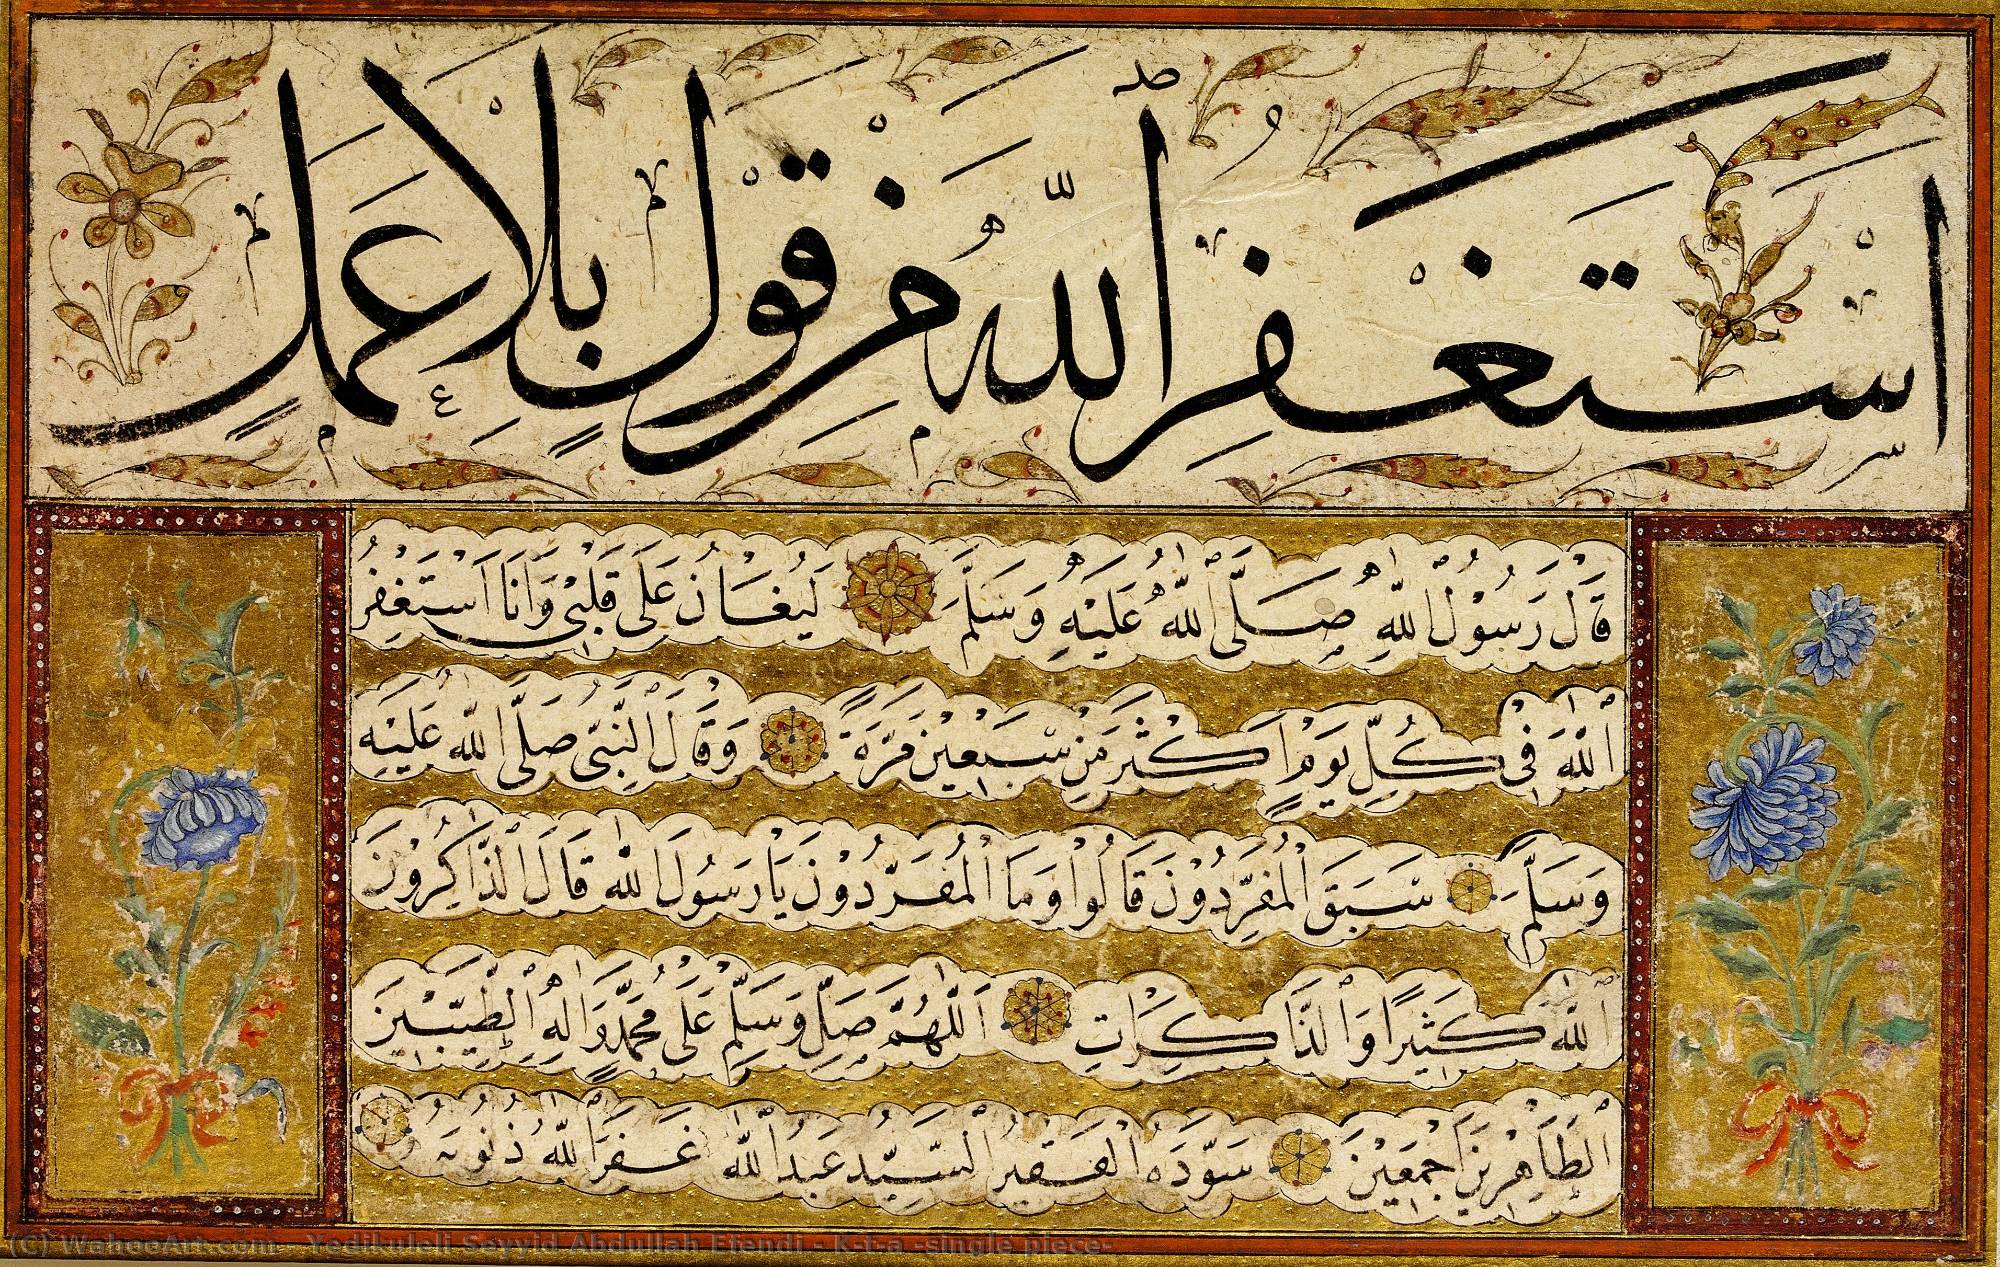 اَسْتَغْفِرُ اللّٰهَ مِنْ قَوْلٍ بِلَا عَمَلٍ
قَالَ رَسُوْلُ اللّٰهِ صَلَّى اللّٰهُ عَلَيْهِ وَسَلَّمَ لَيُغَانُ عَلٰى قَلْبِيْ وَاَنَا اَسْتَغْفِرُ
اللّٰهَ فِيْ كُلِّ يَوْمٍ اَكْثَرَ مِنْ سَبْعِيْنَ مَرَّةً وَقَالَ النَّبِيُّ صَلَّى اللّٰهُ عَلَيْهِ
وَسَلَّمَ سَبَقَ الْمُفَرِّدُوْنَ قَالُوْا وَمَا الْمُفَرِّدُوْنَ يَا رَسُوْلَ اللّٰهِ قَالَ الذَّاكِرُوْنَ
اللّٰهَ كَثِيْرًا وَالذَّاكِرَاتِ اَللّٰهُمَّ صَلِّ وَسَلِّمْ عَلٰى مُحَمَّدٍ وَاٰلِهِ الطَّيِّبِيْنَ
الطَّاهِرِيْنَ اَجْمَعِيْنَ سَوَّدَهُ الْفَقِيْرُ السَّيِّدُ عَبْدُ اللّٰهِ غَفَرَ اللّٰهُ ذُنُوْبَهُ
(C) WahooArt.com - Yedikuleli Seyyid Abdullah Efendi - K-i-a -single piece-